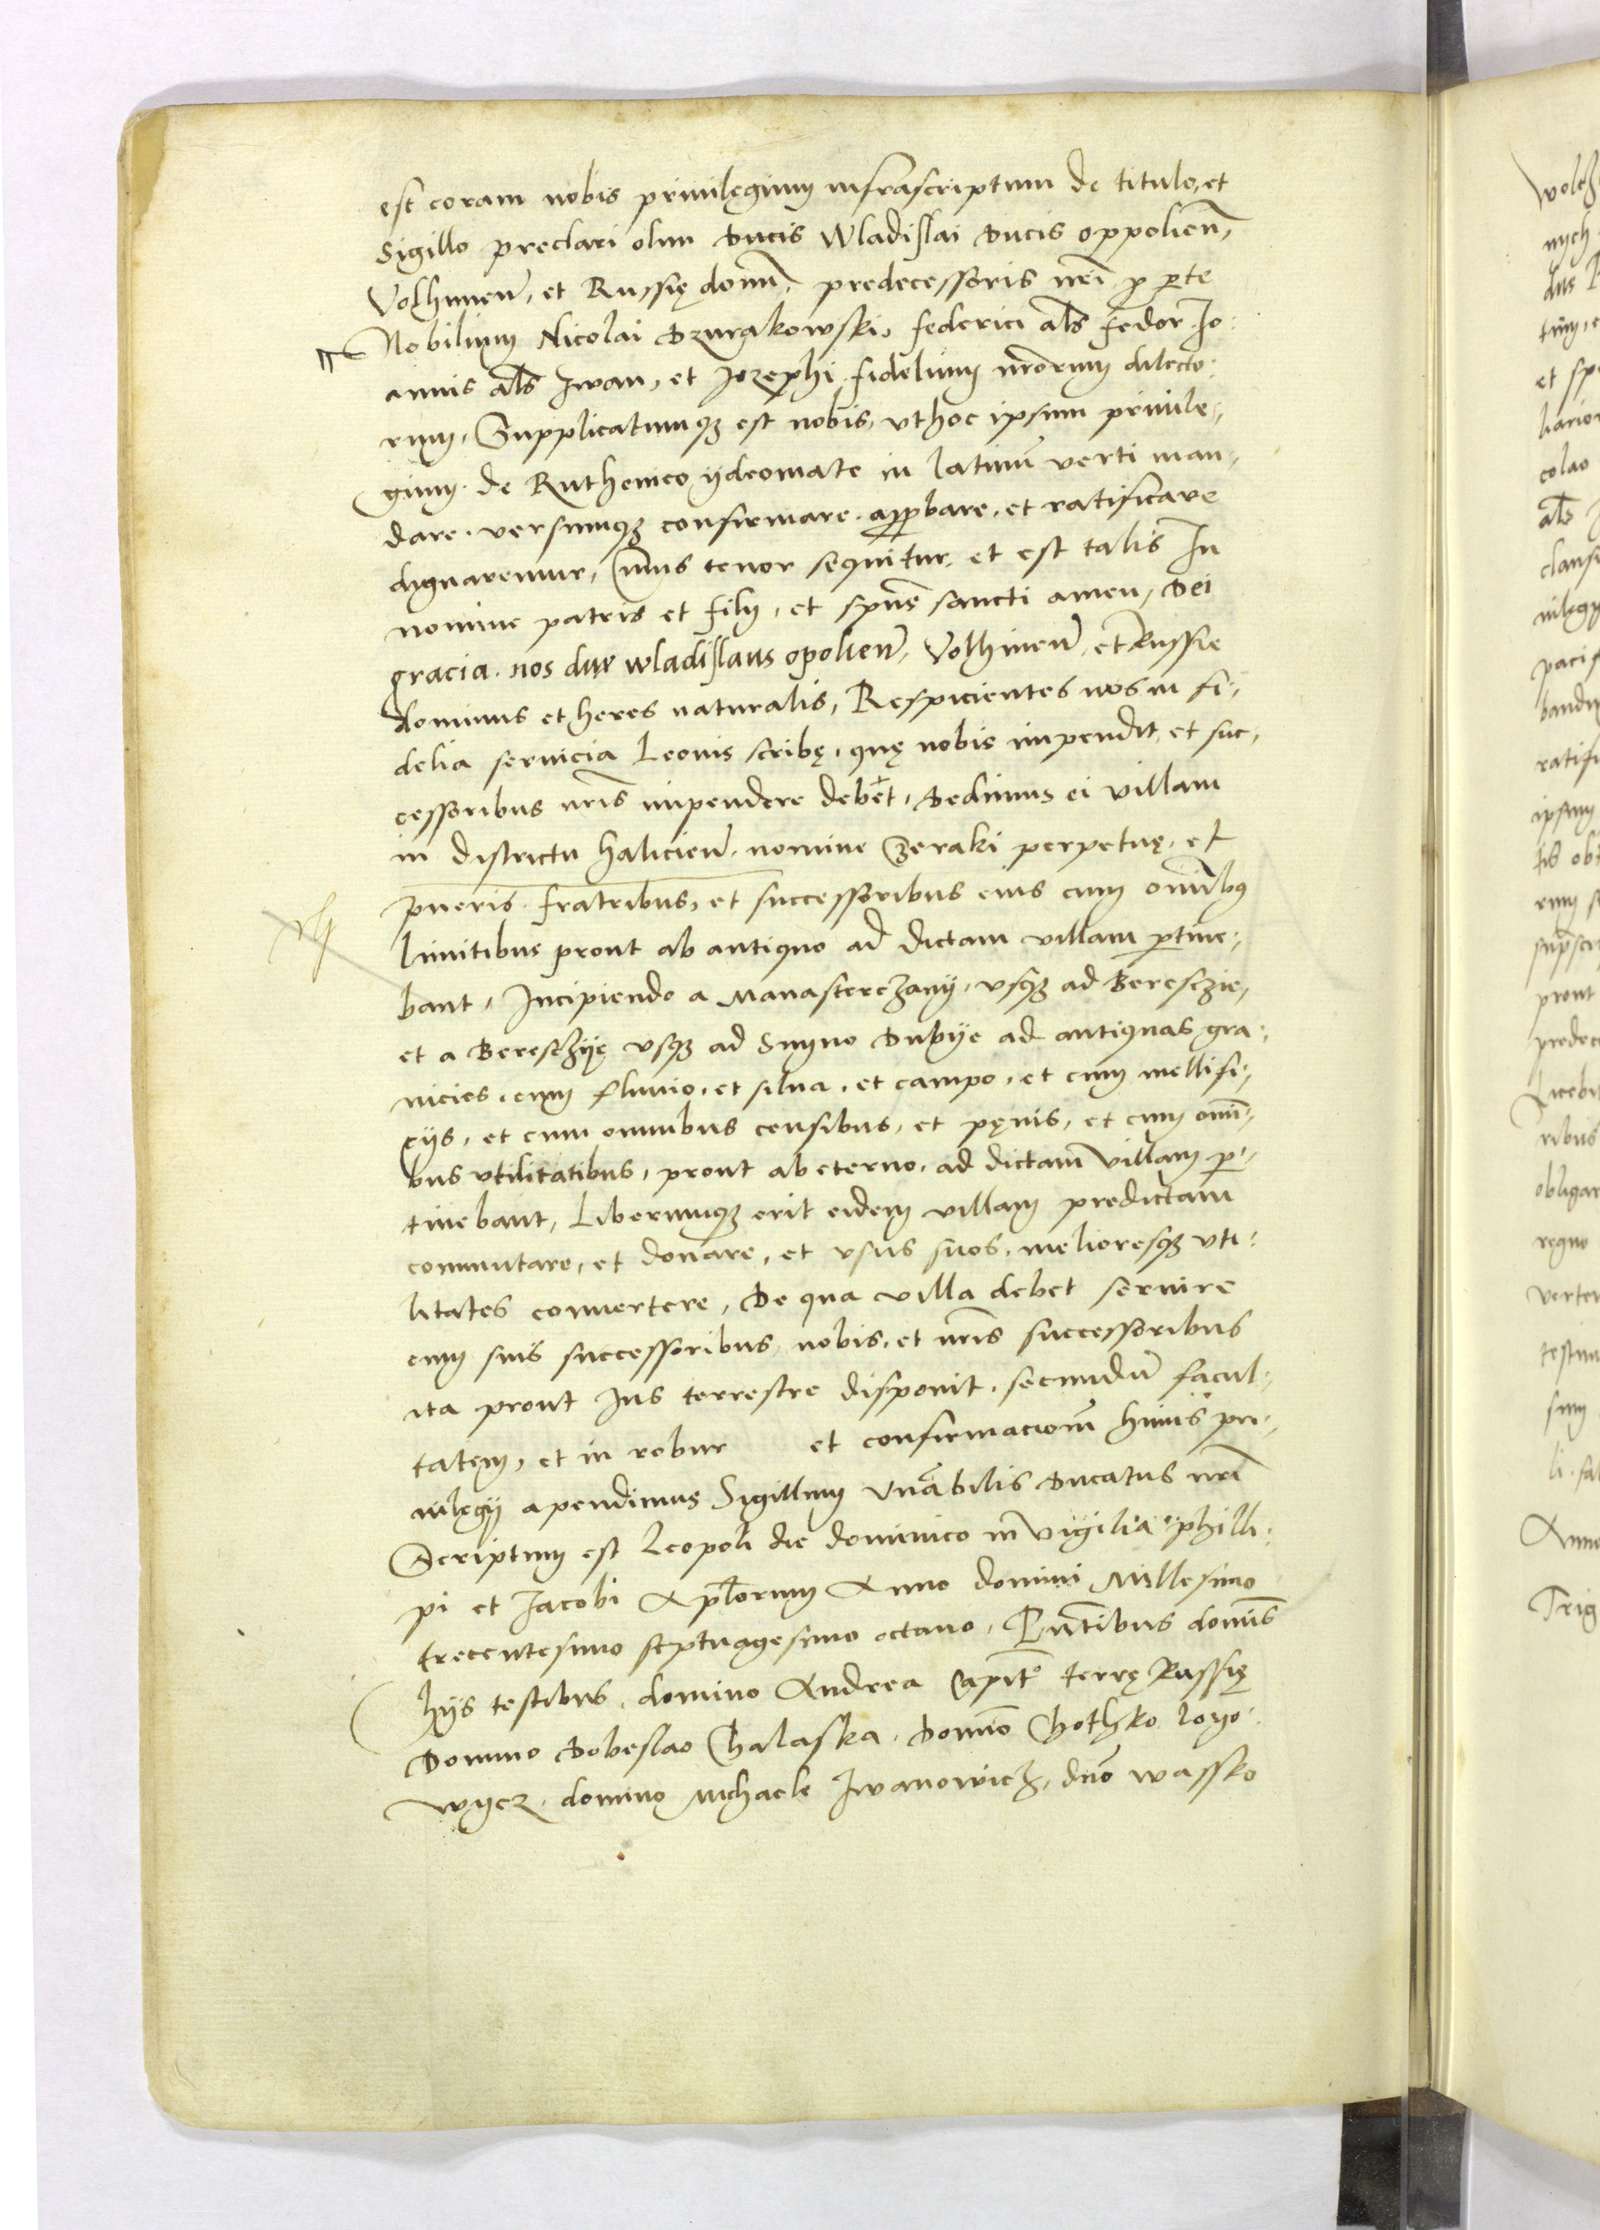 est coram nobis priuilęgium infrascriptum de titulo, et
Sigillo preclari olim Ducis Wladislai Ducis oppolieñ,
Volhineñ, et Russię domĩ, predecessoris nrĩ p pte
Nobilium Nicolai Dzurakowski, federici als fedor Jo:
annis als Iwan, et Jozephi fidelium nrõrum dilecto:
rum, Supplicatumqȝ est nobis, vt hoc ipsum priuile:
gium de Ruthenico ydeomate in latinũ verti man:
dare, versumqȝ confirmare, approbare, et ratificare
dignaremur, Cuius tenor sequitur, et est talis In
nomine patris et filij, et spũs sancti amen, Dei
gracia. nos dux wladislaus opolieñ, Volhineñ, et Russie
dominus et heres naturalis, Respicientes nos in fi:
delia seruicia Leonis scribę, quę nobis impendit, et suc,
cessoribus nrĩs impendere debet, Dedimus ei villam
in districtu halicieñ, nomine Czeraki perpetuę, et
pueris, fratribus, et successoribus eius cum omĩbus
limitibus prout ab antiquo ad dictam villam ptine:
bant, Incipiendo a Manasterczany, vsqȝ ad Beresczie,
et a Beresczyę vsqȝ ad Suyno Dubye ad antiquas gra:
nicies, cum fluuio, et silua, et campo, et cum mellifi:
cijs, et cum omnibus censibus, et pęnis, et cum omĩ:
bus vtilitatibus, prout ab eterno, ad dictam villam p:
tinebant, Liberumqȝ erit eidem villam predictam
commutare, et donare, et vsus suos, melioresqȝ vti:
litates conuertere, De qua villa debet seruire
cum suis successoribus nobis, et nrĩs successoribus
ita prout Ius terrestre disponit, secundũ facul:
tatem, et in robur et confirmacionẽ huius pri:
uilęgij apendimus Sigillum vnãbilis Ducatus nrĩ
Scriptum est Leopoli die dominico in vigilia phili:
pi et Jacobi Apłorum Anno domini Millesimo
trecentesimo septuagesimo octauo, Pñtibus domĩs
hijs testibus, domino Andrea Capitõ terrę Russię
Domino Dobeslao Chalaska, Domĩo Chothko loyo:
wycz, domino Michaele Iwanowicz, dño wassko